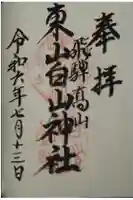 奉拝
飛騨高山
東山白山神社
令和六年七月十三日